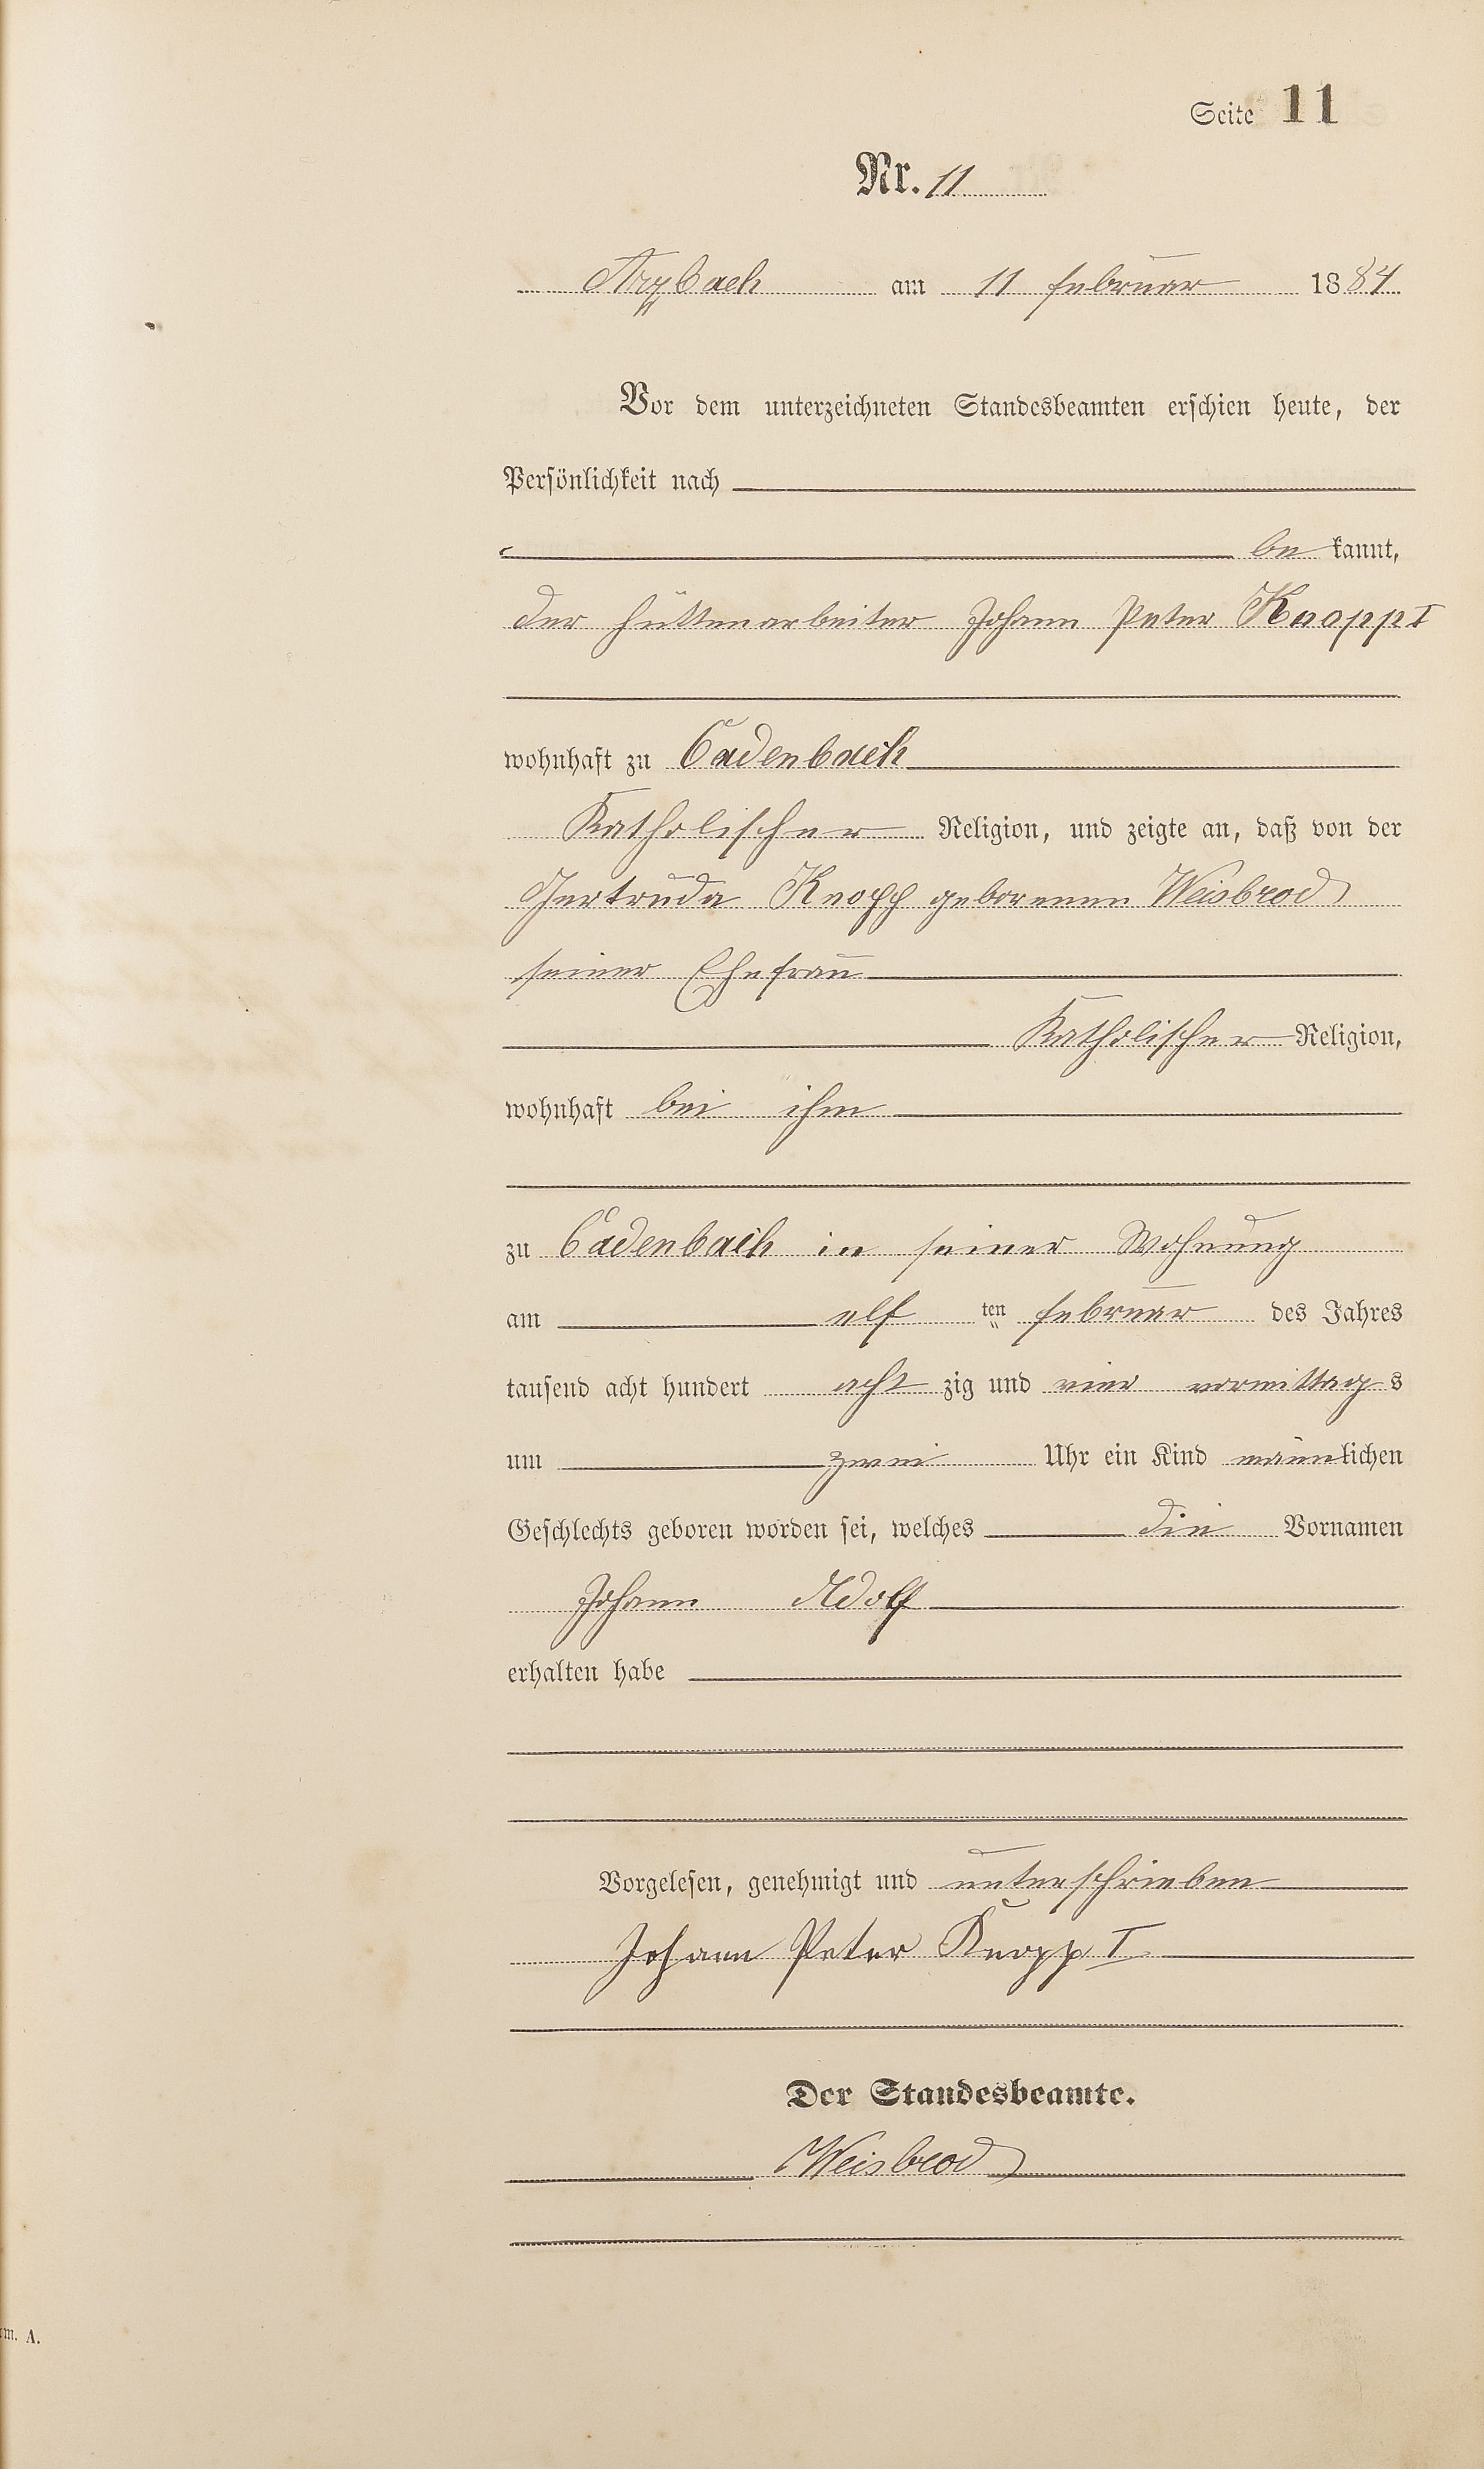 Seite 11
Nr. 11
Arzbach am 11 Februar 1884
Vor dem unterzeichneten Standesbeamten erschien heute, der
Persönlichkeit nach
be kannt,
der Hüttenarbeiter Johann Peter Knopp I
wohnhaft zu Cadenbach
Katholischer Religion, und zeigte an, daß von der
Gertruda Knopp geborenen Weisbrod
seiner Ehefrau
Katholischer Religion,
wohnhaft bei ihm
zu Cadenbach in seiner Wohnung
am elf ten Februar des Jahres
tausend acht hundert acht zig und vier vormittags
um zwei Uhr ein Kind männlichen
Geschlechts geboren worden sei, welches die Vornamen
Johann Adolf
erhalten habe
Vorgelesen, genehmigt und unterschrieben
Johann Peter Knopp I
Der Standesbeamte.
Weisbrod
m. A.